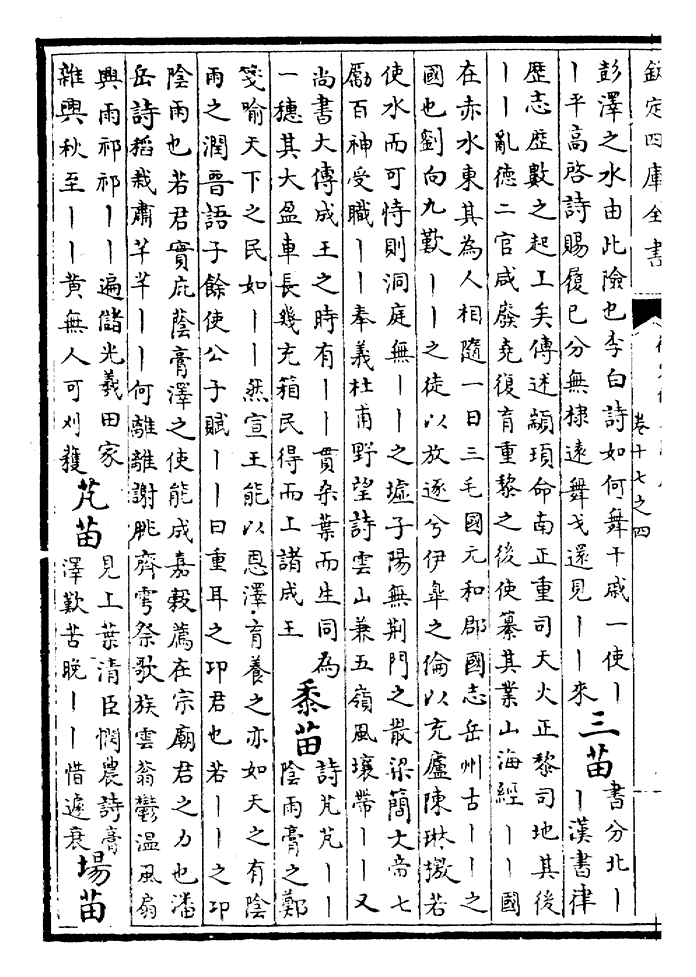 欽定四庫全書
卷十七之四
彭澤之水由此險也李白詩如何舞干戚一使丨
丨平高啓詩賜履已分無棣遠舞戈還見丨丨來
三苗
書分北丨
丨漢書律
歴志歴數之起上矣傳述顓頊命南正重司天火正黎司地其後
丨丨亂德二官咸廢堯復育重黎之後使纂其業山海經丨丨國
在赤水東其為人相隨一曰三毛國元和郡國志岳州古丨丨之
國也劉向九歎丨丨之徒以放逐兮伊臯之倫以充廬陳琳檄若
使水而可恃則洞庭無丨丨之墟子陽無荆門之敗梁簡文帝七
勵百神受職丨丨奉義杜甫野望詩雲山兼五嶺風壤帶丨丨又
尚書大傳成王之時有丨丨貫桑葉而生同為
一穗其大盈車長幾充箱民得而上諸成王
黍苗
詩芃芃丨丨
陰雨膏之鄭
箋喻天下之民如丨丨然宣王能以恩澤育養之亦如天之有陰
雨之潤晉語子餘使公子賦丨丨曰重耳之卬君也若丨丨之卬
陰雨也若君實庇蔭膏澤之使能成嘉穀薦在宗廟君之力也潘
岳詩稻栽肅芊芊丨丨何離離謝朓齊雩祭歌族雲蓊鬱温風扇
興雨祁祁丨丨遍儲光羲田家
雜興秋至丨丨黄無人可刈穫
芃苗
見上葉清臣憫農詩膏
澤歎苦晚丨丨惜遽衰
場苗